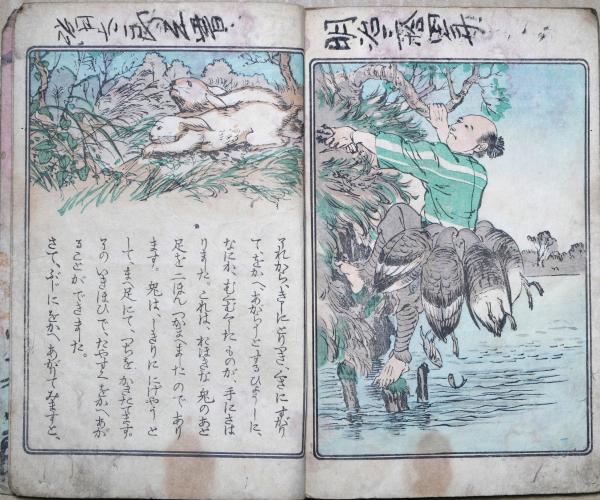 明治三拾四年
それから、きしにとりつき、くさにすがり
て、をかへあがらーとするひよーしに、
なにか、むくむくしたものが、手にさは
りました。これは、おほきな兎のあと
足を二ほんつかまへましたのであり
ます。兎は、しきりににげやうと
して、まへ足にて、つちをかきたてます。
そのいきほひで、たやすくをかへあが
ることができました。
さて、ぶじにをかへあがりてみますと、